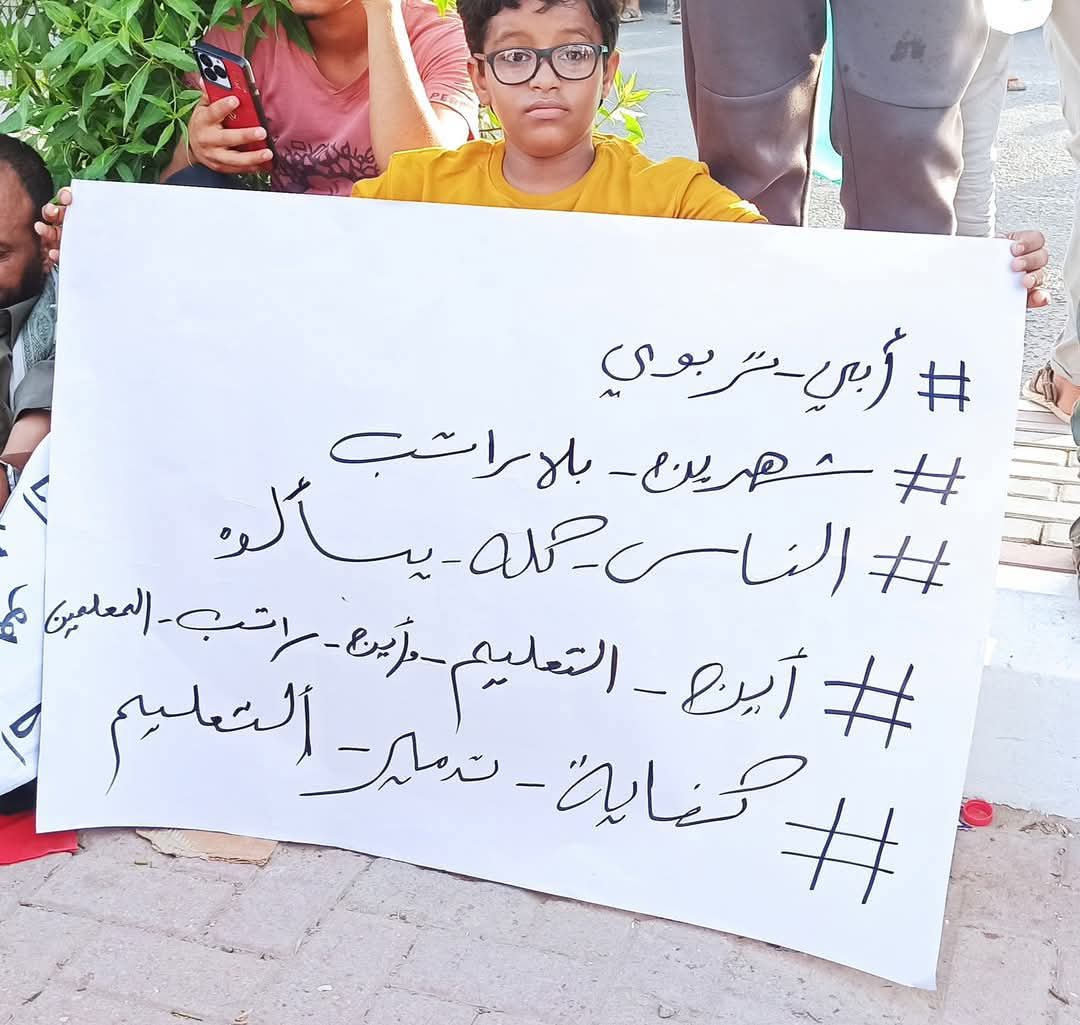 # أبي - تربوي
# شهرين - بلا راتب
# الناس - كله - يسألوه
# أين - التعليم - وأين - راتب - المعلمين
# كفاية - تدمير - ألتعليم